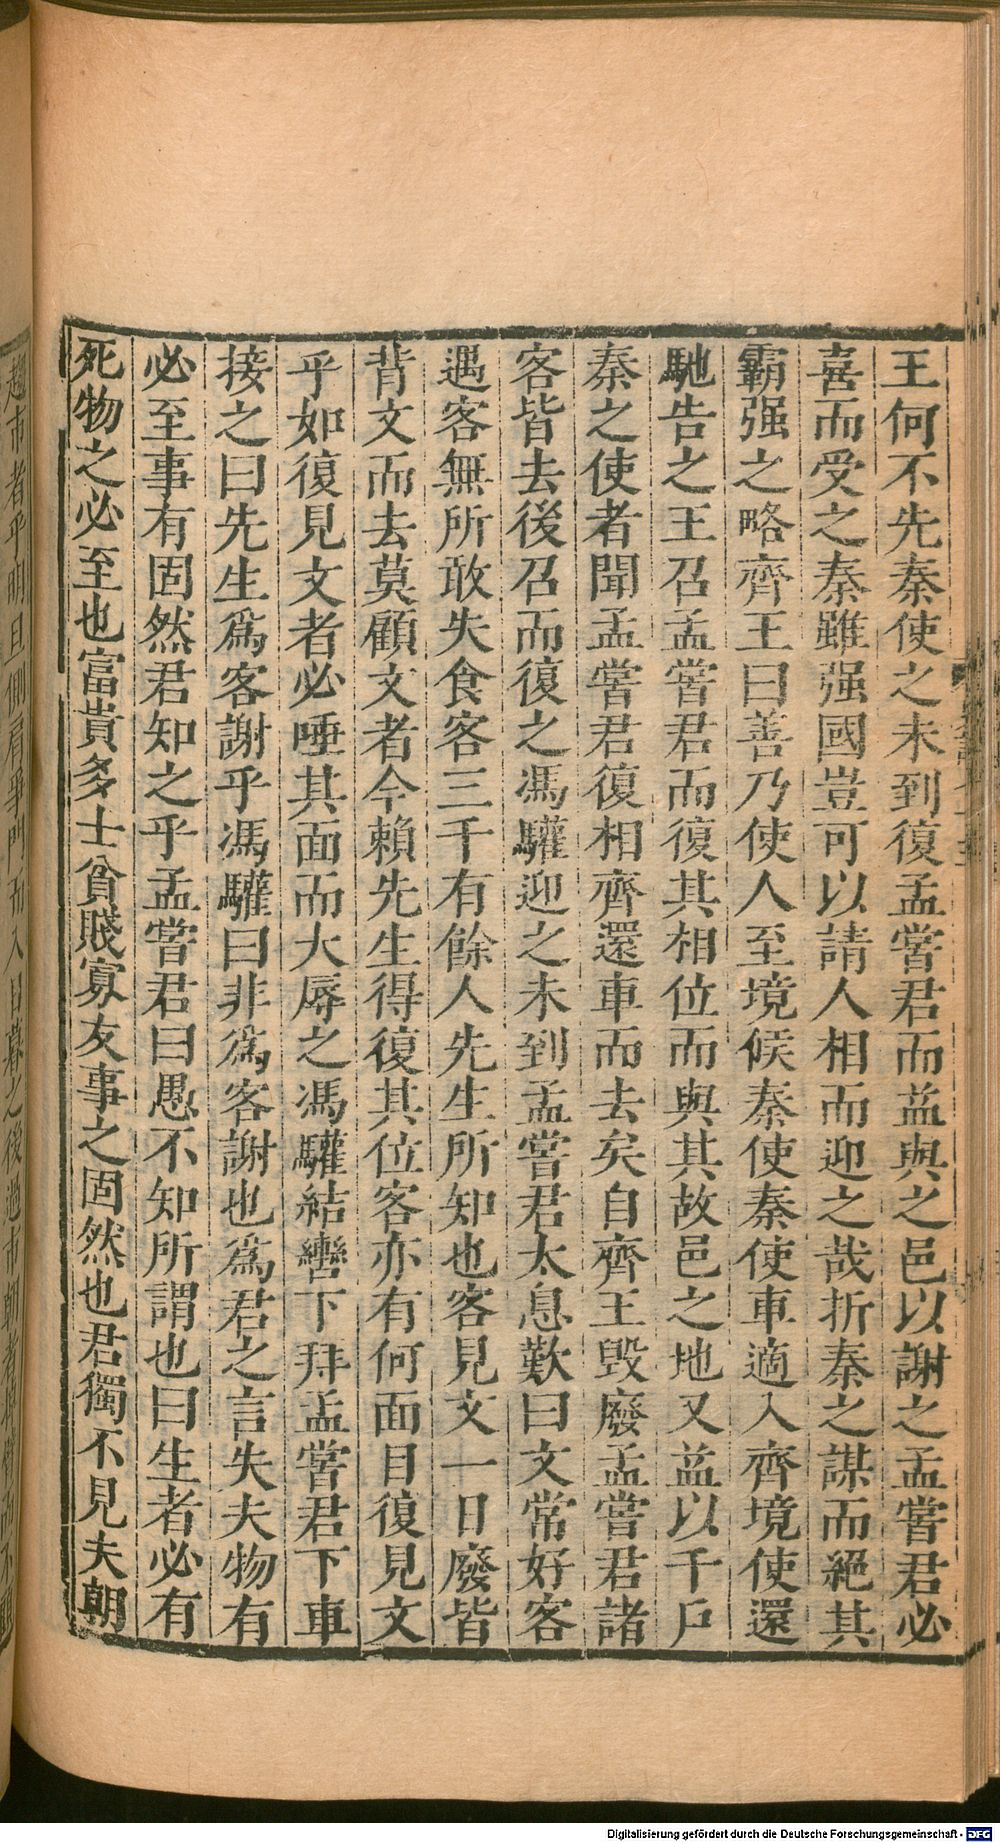 王何不先秦使之未到復孟嘗君而益與之邑以謝之孟嘗君必
喜而受之秦雖强國豈可以請人相而迎之哉折秦之謀而絕其
霸强之略齊王曰善乃使人至境候秦使秦使車適入齊境使還
馳告之王召孟嘗君而復其相位而與其故邑之地又益以千戶
秦之使者聞孟嘗君復相齊還車而去矣自齊王毀廢孟嘗君諸
客皆去後召而復之馮驩迎之未到孟嘗君太息歎曰文常好客
遇客無所敢失食客三千有餘人先生所知也客見文一日廢皆
背文而去莫顧文者今賴先生得復其位客亦有何面目復見文
乎如復見文者必唾其面而大辱之馮驩結轡下拜孟嘗君下車
接之曰先生爲客謝乎馮驩曰非爲客謝也爲君之言失夫物有
必至事有固然君知之乎孟嘗君曰愚不知所謂也曰生者必有
死物之必至也富貴多士貧賤寡友事之固然也君獨不見夫朝
趨市者乎明旦側肩爭門而入日暮之後過市朝者掉臂而不顧
Digitalisierung gefördert durch die Deutsche Forschungsgemeinschaft - DFG